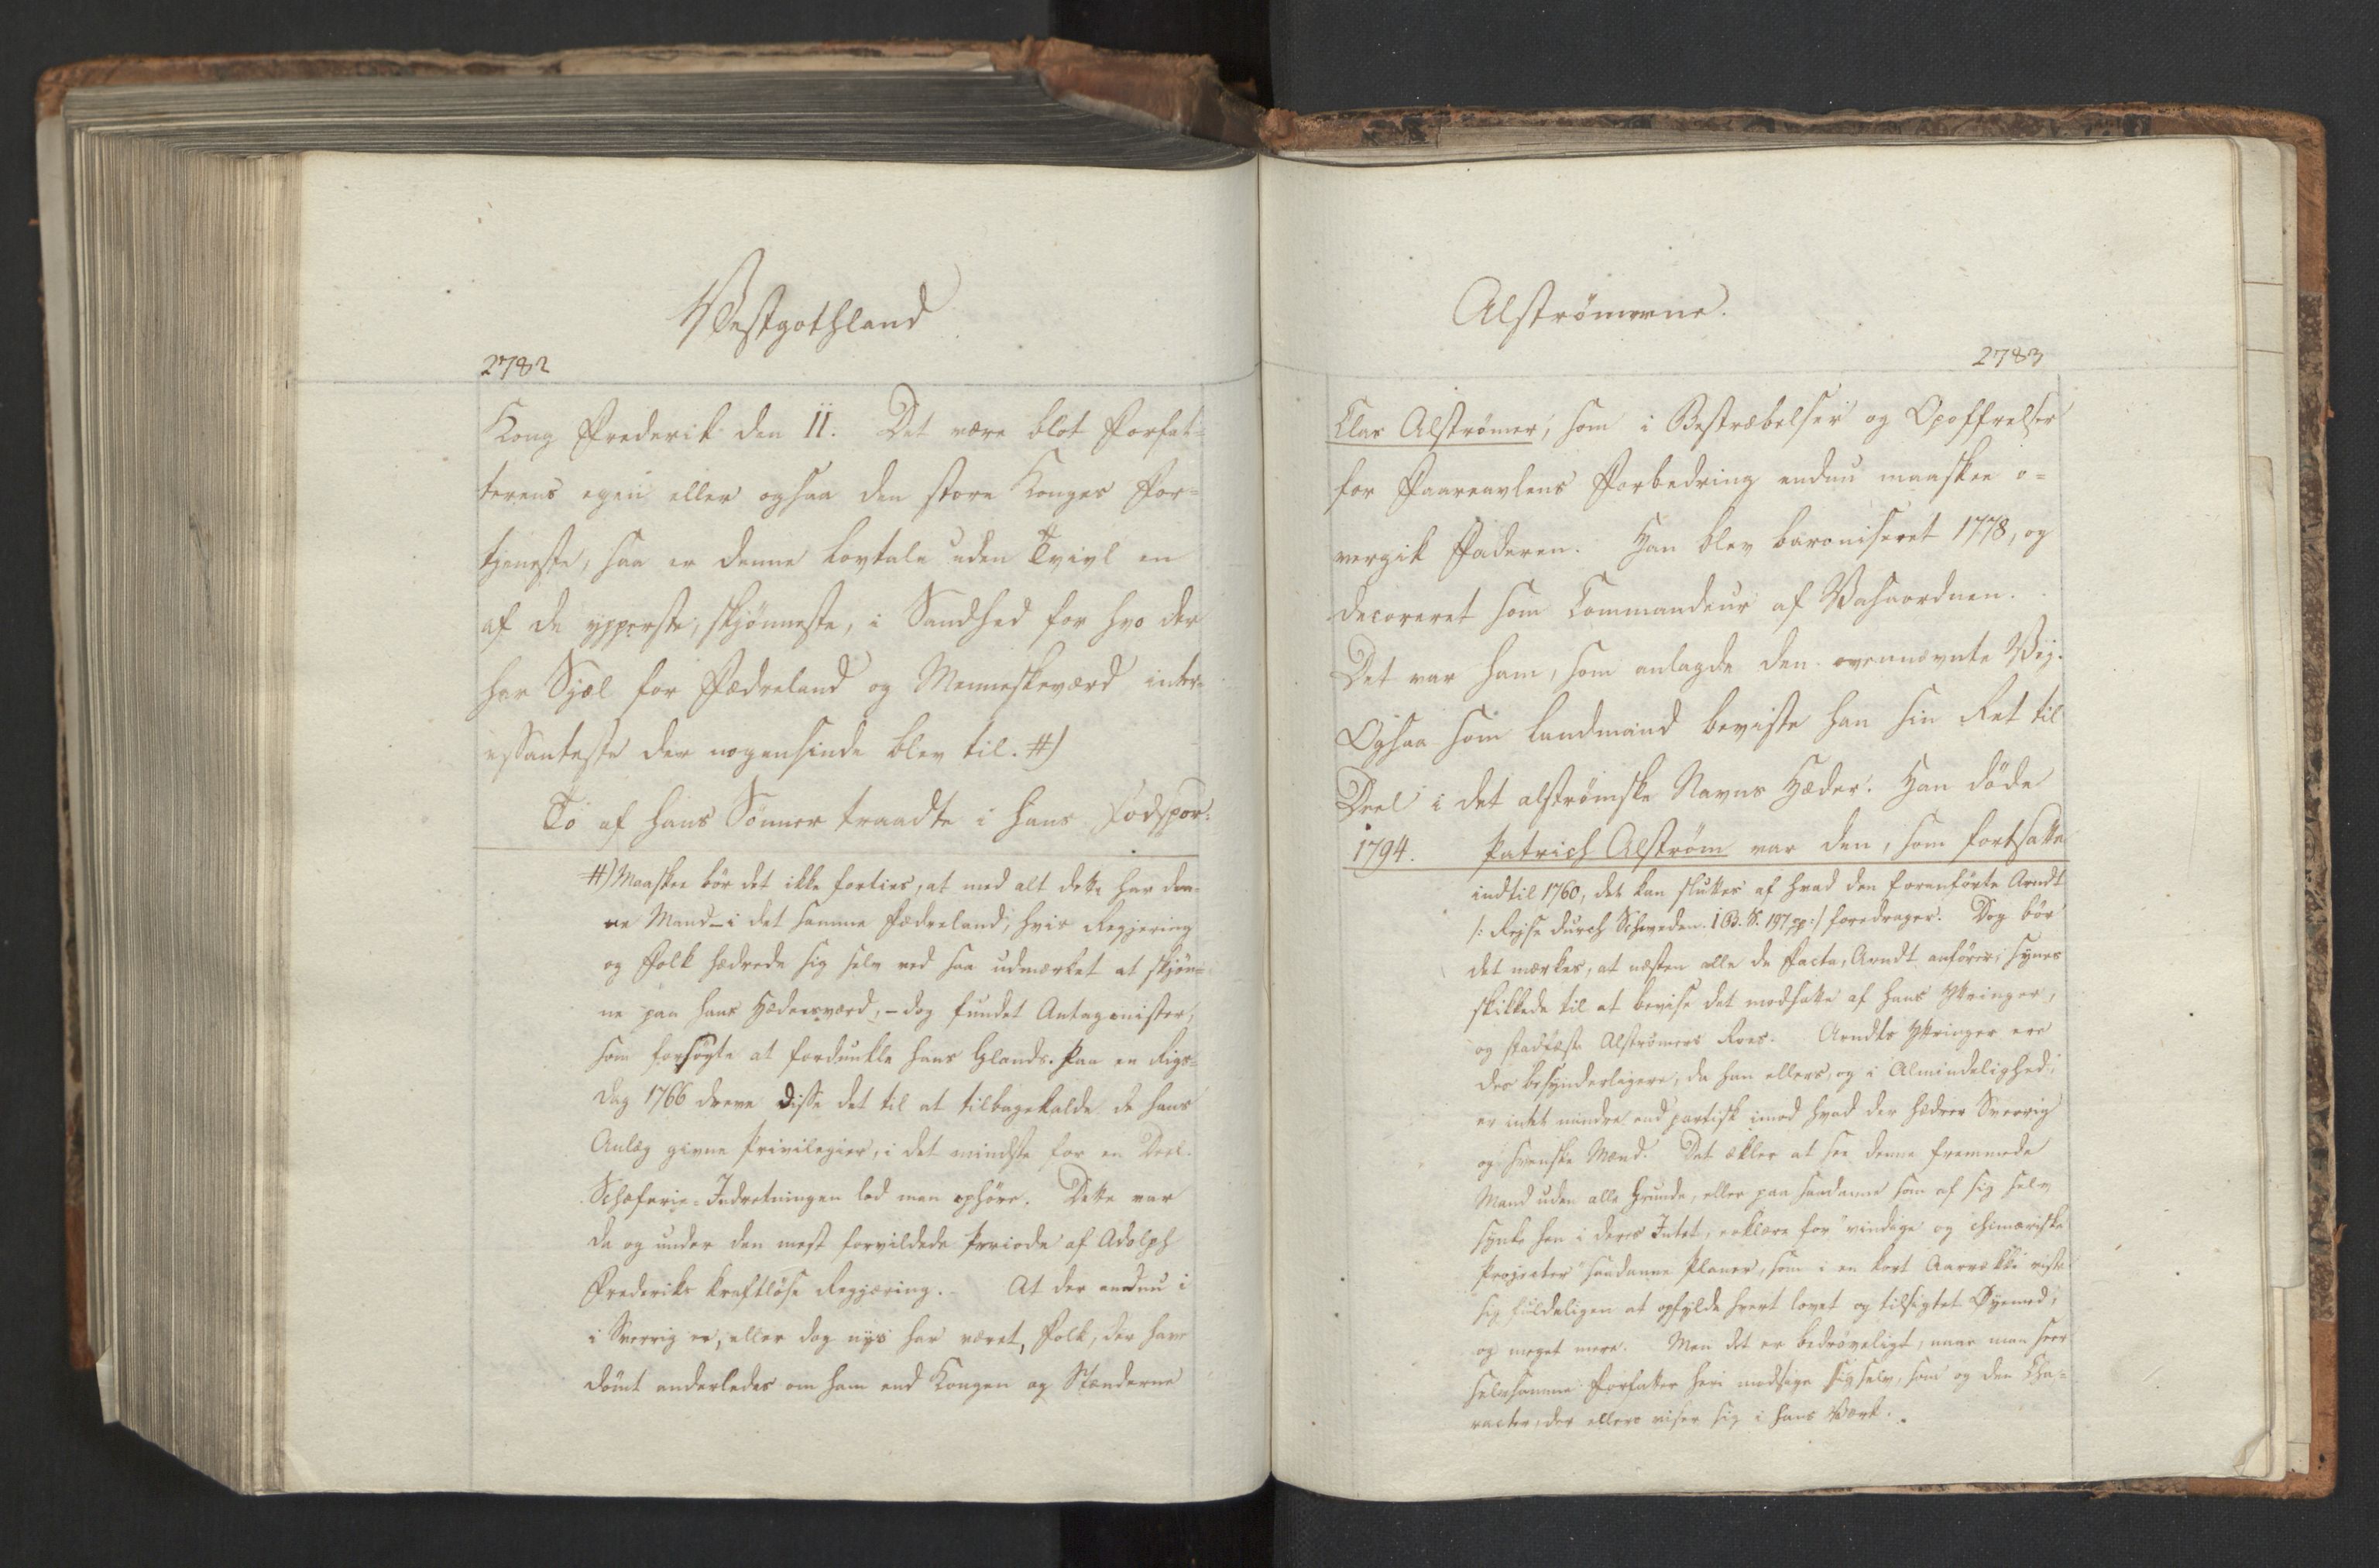 Westgothland
2782
Kong Frederik den II. Det være blot Forfat-
terens egen eller ogsaa den store Konges For-
tjeneste, saa er denne Lovtale uden Tvivl en
af de ypperste, skjønneste, i Sandhed for hvo der
har Sjæl for Fædreland og Menneskeværd inter-
essanteste der nogensinde blev til. #)
To af hans Sønner traadte i hans Fodspor:
#) Maaskee bör det ikke forties, at med alt dette har den-
ne Mand – i det samme Fædreland, hvis Regjering
og Folk hædrede sig selv ved saa udmærket at skjön-
ne paa hans Hædersværd, – dog fundet Antagonister,
som forsøgte at fordunkle hans Glands. Paa en Rigs-
dag 1766 dreve disse det til at tilbagekalde de hans
Anlæg givne Privilegier, i det mindste for en Deel.
Schæferie-Indretningen lod man ophöre. Dette var
da og under den mest forvildede Periode af Adolph
Frederiks kraftlöse Regjæring. – At der endnu i
i Sverrig er, eller dog nys har været, Folk, der have
dömt anderledes om ham end Kongen og Stænderne
Alströmerne.
2783
Clas Alströmer, som i Bestræbelser og Opoffrelser
for Faareavlens Forbedring endnu maaskee o-
vergik Faderen. Han blev baroniseret 1778, og
decoreret som Commandeur af Vasaordnen.
Det var ham, som anlagde den ovennævnte Vej.
Ogsaa som Landmand beviste han sin Ret til
Deel i det alströmske Navns Hæder. Han döde
1794. Patrich Alström var den, som fortsatte
indtil 1760, det kan sluttes af hvad den foranförte Arndt
/: Rejse durch Schweden. I B. S. 197 pp :/ foredrager. Dog bör
det mærkes, at næsten alle de Facta, Arndt anförer, synes
skikkede til at bevise det modsatte af hans Yttringer,
og stadfæste Alströmers Roes. Arndts Yttringer ere
des besynderligere, da han ellers, og i Almindelighed,
er intet mindre end partisk imod hvad der hædrer Sverrig
og svenske Mænd. Det ækler at see denne fremmede
Mand uden alle Grunde, eller paa saadanne som af sig selv
synke hen i deres Intet, erklære for "vindige og chimæriske
Projecter" saadanne Planer, som i en kort Aarrække viste
sig fuldeligen at opfylde hvert lovet og tilsigtet Øyemed,
og meget mere. Men det er bedröveligt, naar man seer
selvsamme Forfatter heri modsige sig selv, som og den Cha-
racter, der ellers viser sig i hans Værk.